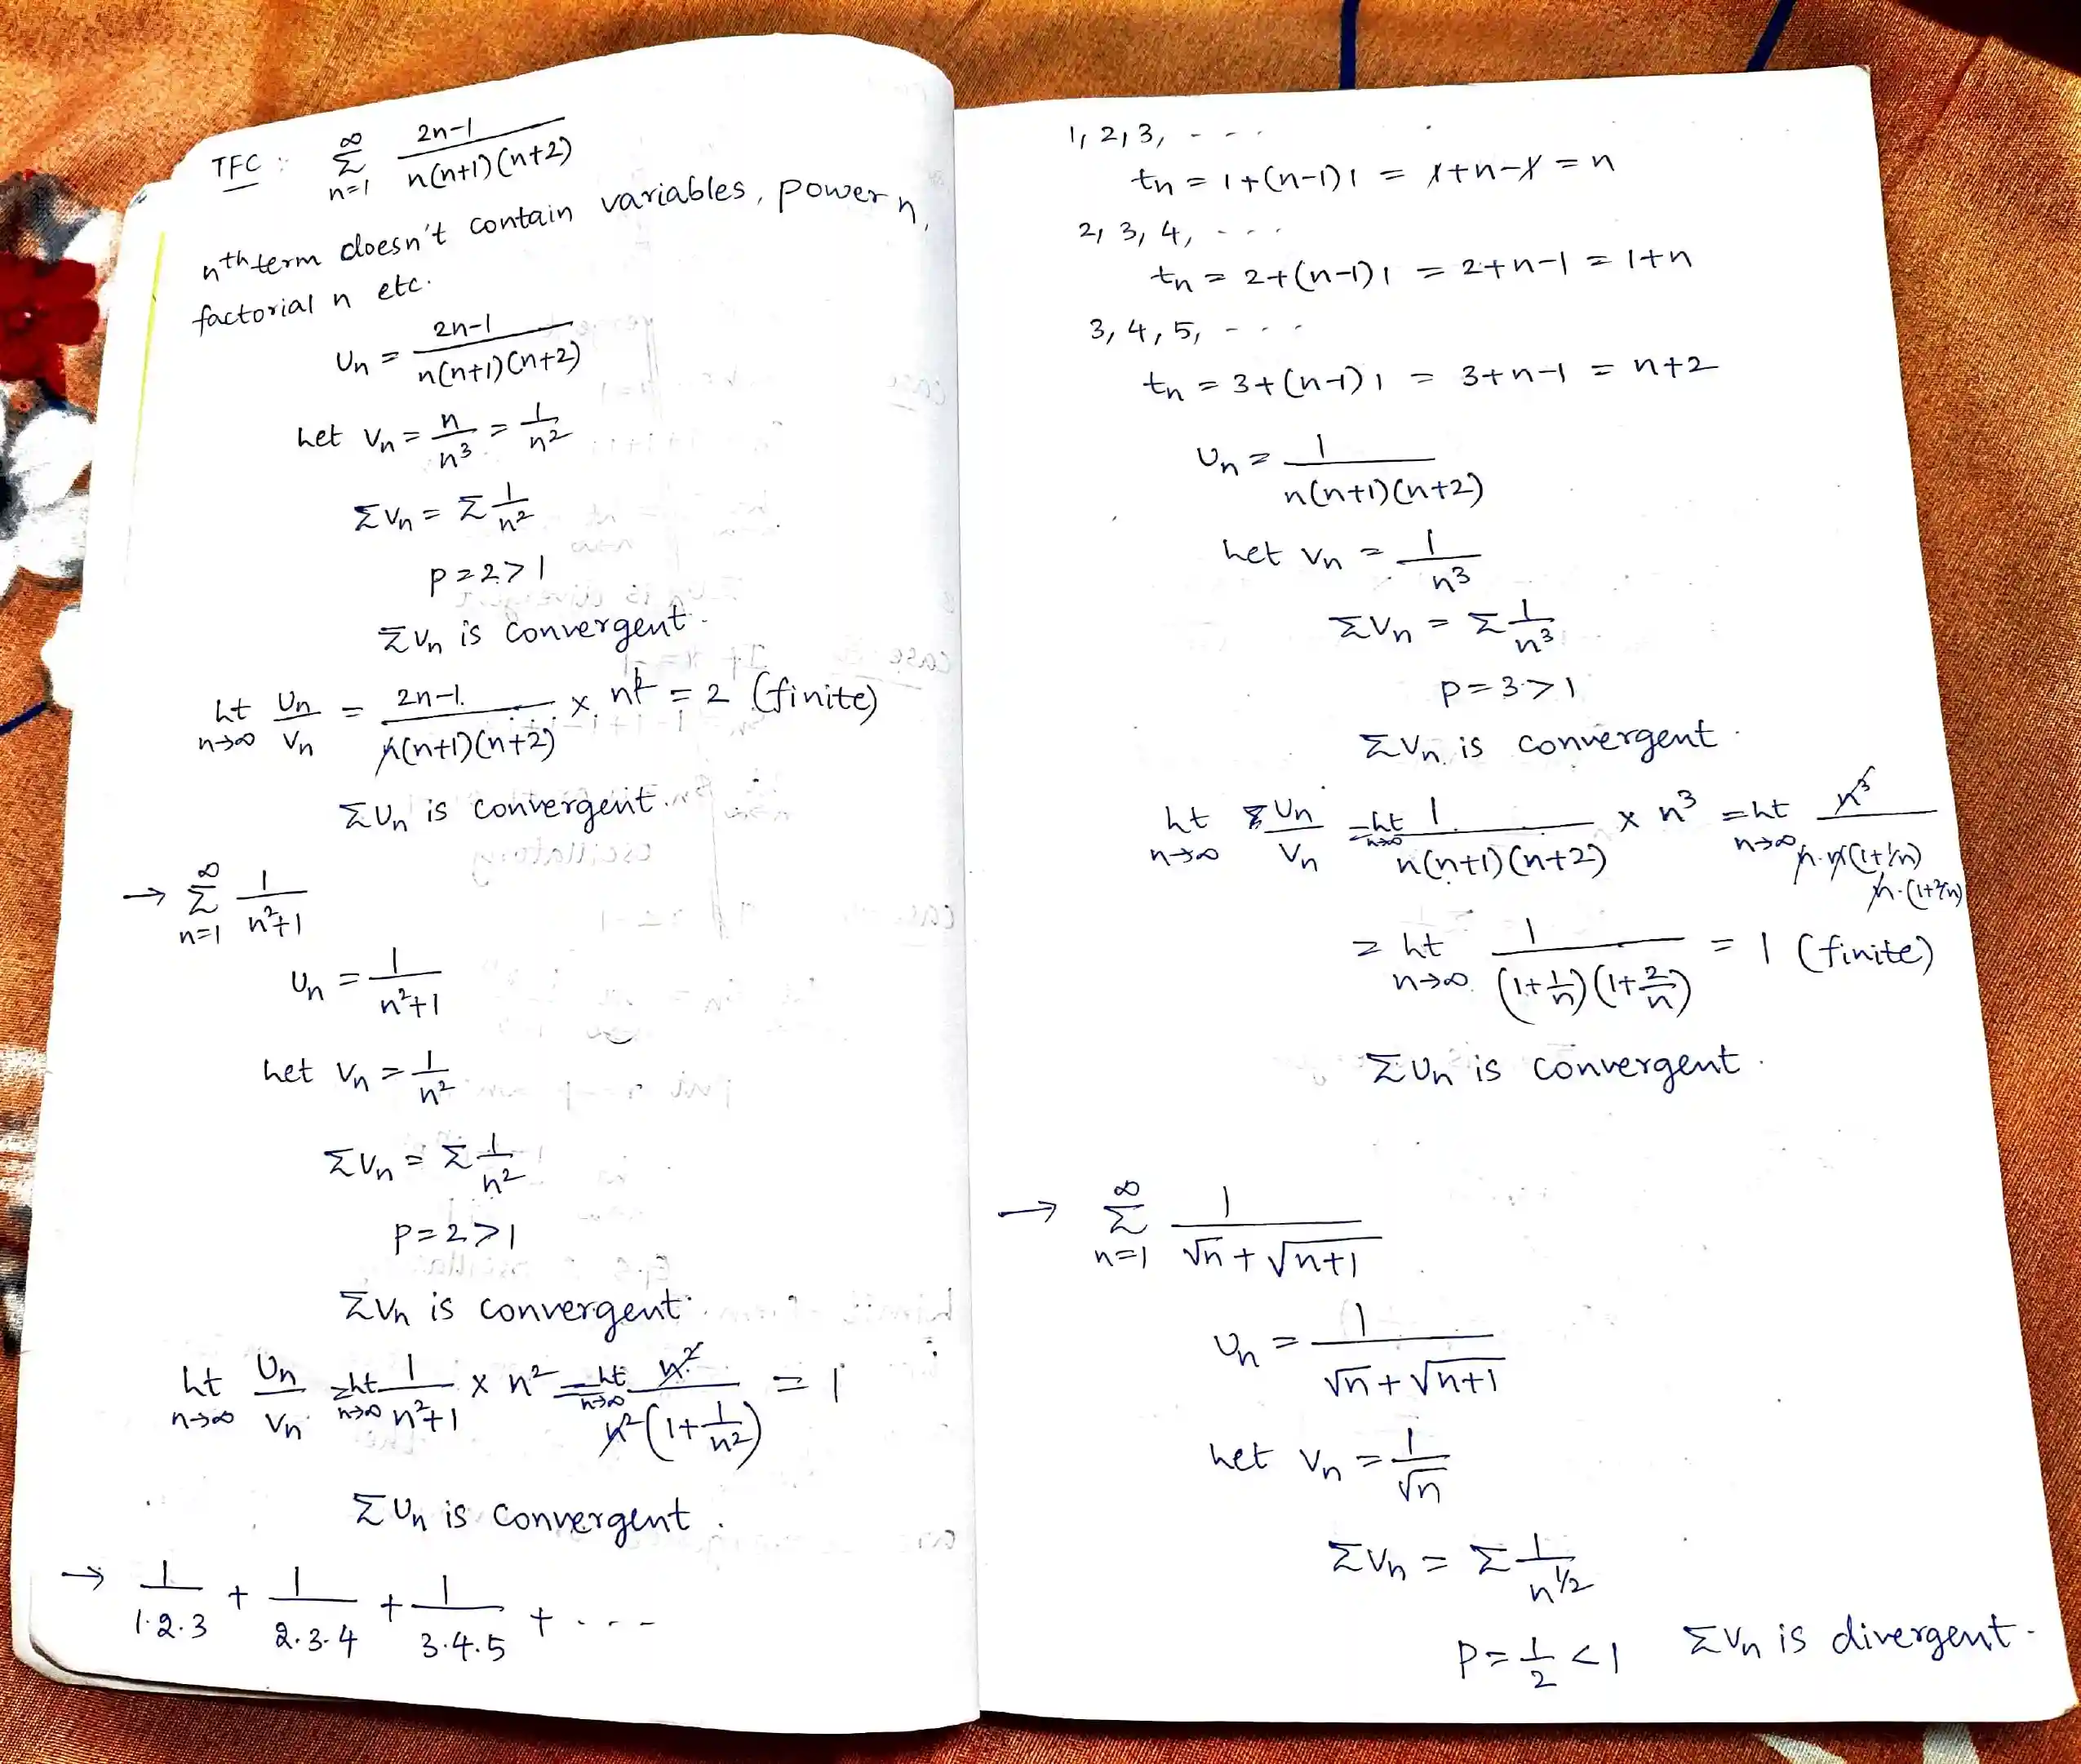 TFC : ∞ Σ n=1 2n-1 / n(n+1)(n+2)
nth term doesn't contain variables, power n,
factorial n etc.
Un = 2n-1 / n(n+1)(n+2)
Let Vn = n/n³ = 1/n²
ΣVn = Σ 1/n²
P=2>1
ΣVn is convergent.
Lt n→∞ Un/Vn = 2n-1 / n(n+1)(n+2) × n² = 2 (finite)
ΣUn is convergent.
→ ∞ Σ n=1 1/n²+1
Un = 1/n²+1
Let Vn = 1/n²
ΣVn = Σ 1/n²
P=2>1
ΣVn is convergent.
Lt n→∞ Un/Vn = Lt n→∞ 1/n²+1 × n² = Lt n→∞ n² / n²(1+1/n²) = 1
ΣUn is convergent.
→ 1/1.2.3 + 1/2.3.4 + 1/3.4.5 + ----
1, 2, 3, ---
tn = 1+(n-1)1 = 1+n-1 = n
2, 3, 4, ---
tn = 2+(n-1)1 = 2+n-1 = 1+n
3, 4, 5, ---
tn = 3+(n-1)1 = 3+n-1 = n+2
Un = 1 / n(n+1)(n+2)
Let Vn = 1/n³
ΣVn = Σ 1/n³
P=3>1
ΣVn is convergent.
Lt n→∞ Un/Vn = Lt n→∞ 1 / n(n+1)(n+2) × n³ = Lt n→∞ n³ / n.n(1+1/n) n.(1+2/n)
= Lt n→∞ 1 / (1+1/n)(1+2/n) = 1 (finite)
ΣUn is convergent.
→ ∞ Σ n=1 1 / √n + √n+1
Un = 1 / √n + √n+1
Let Vn = 1/√n
ΣVn = Σ 1/n^1/2
P = 1/2 < 1 ΣVn is divergent.